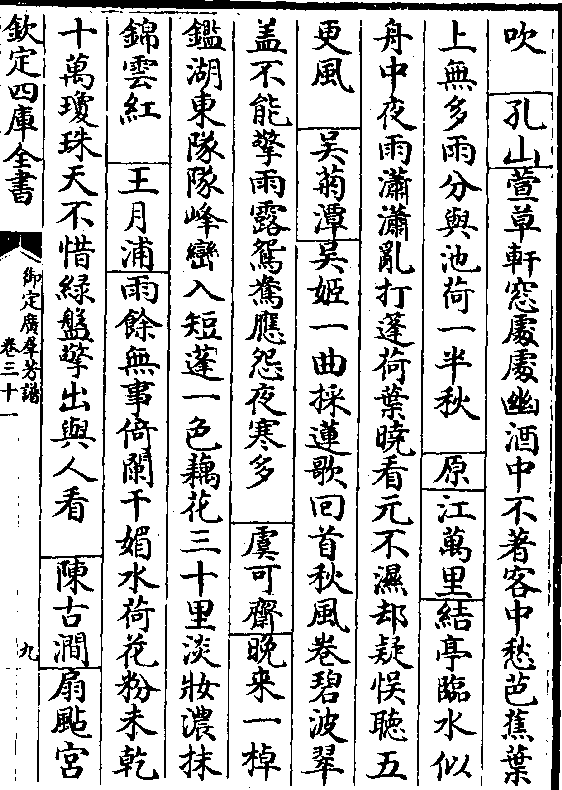 吹　孔山萱草軒窓處處幽酒中不著客中愁芭蕉葉
上無多雨分與池荷一半秋　原江萬里結亭臨水似
舟中夜雨瀟瀟亂打蓬荷葉曉看元不濕却疑悮聴五
更風　吳菊潭吳姬一曲採蓮歌囘首秋風卷碧波翠
盖不能擎雨露鴛鴦應怨夜寒多　虞可齋晚来一棹
鑑湖東隊隊峰巒入短蓬一色藕花三十里淡妝濃抹
錦雲紅　王月浦雨餘無事倚闌干媚水荷花粉未乾
十萬瓊珠天不惜緑盤擎出與人看　陳古澗扇颭宮
欽定四庫全書
御定廣羣芳譜
卷三十一
九